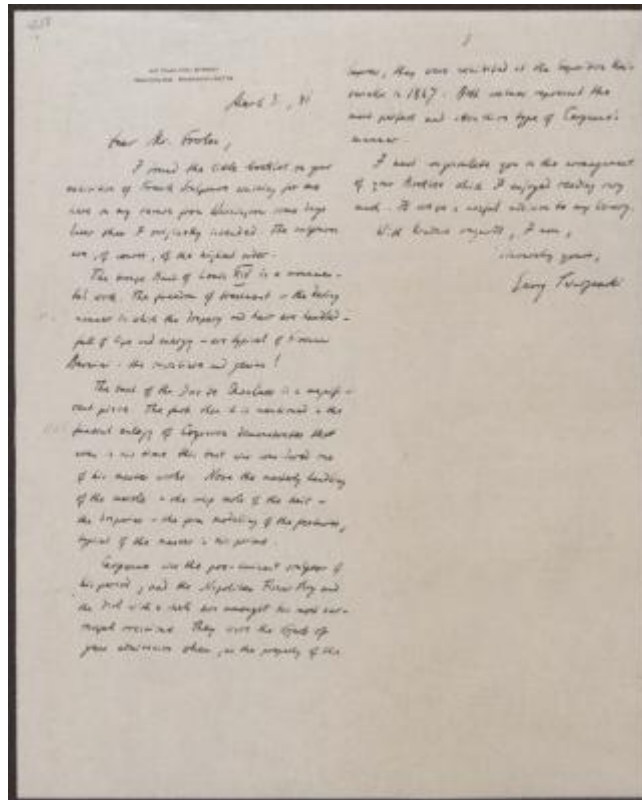 March 3, '51
Dear Mr. Fowles,
I found the little booklet on your
exhibition of French Sculpture waiting for me
here on my return from Washington some days
later than I originally intended. The sculptures
are, of course, of the highest order.
The bronze Bust of Louis XIV is a monumen-
tal work. The freedom of treatment in the daring
manner in which the drapery and hair are handled -
full of life and energy - are typical of
Bernini - the
The bust of the Duc de Chaulnes is a magnifi-
cent piece. The fact that it is mentioned in the
funeral eulogy of Coysevox demonstrates that
even in his time this bust was considered one
of his master works. Note the masterly handling
of the marble - the crisp of the hair -
the drapery - the modeling of the features,
typical of the master in his prime.
Carpeaux was the pre-eminent sculptor of
his period, and the Neapolitan Fisher Boy and
the Girl with a shell are amongst his most
They were the
great admiration when, as the property of the
2
they were exhibited at the Exposition Uni-
verselle in 1867. Both statues represent the
most perfect and type of Carpeaux's
manner.
I must congratulate you on the arrangement
of your Booklet which I enjoyed reading very
much. It is a useful addition to my library.
With kindest regards, I am,
Sincerely yours,
Georg Swarzenski